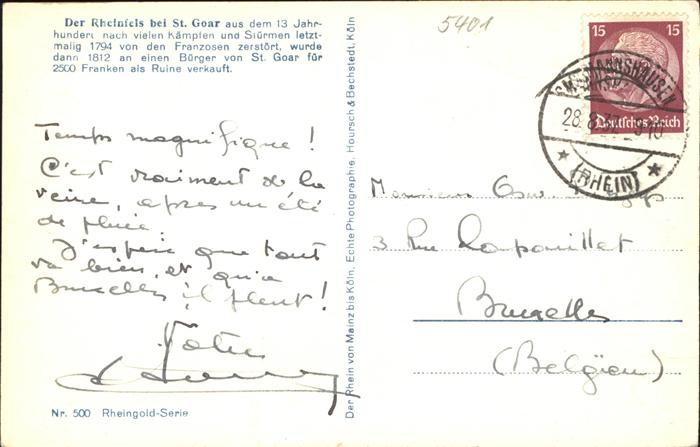 Der Rheinfels bei St. Goar aus dem 13 Jahr-
hundert nach vielen Kämpfen und Stürmen letzt-
malig 1794 von den Franzosen zerstört, wurde
dann 1812 an einen Bürger von St. Goar für
2500 Franken als Ruine verkauft.
5401
15 15
Deutsches Reich
ASSMANNSHAUSEN
28.8
(RHEIN)
Temps magnifique !
C'est vraiment de la
veine, après un été
de pluie.
J'espère que tout
va bien, et qu'à
Bruxelles il pleut !
Votre
Nr. 500 Rheingold-Serie
Der Rhein von Mainz bis Köln, Echte Photographie, Hoursch & Bechstedt, Köln
Monsieur
3 Rue
Bruxelles
(Belgien)